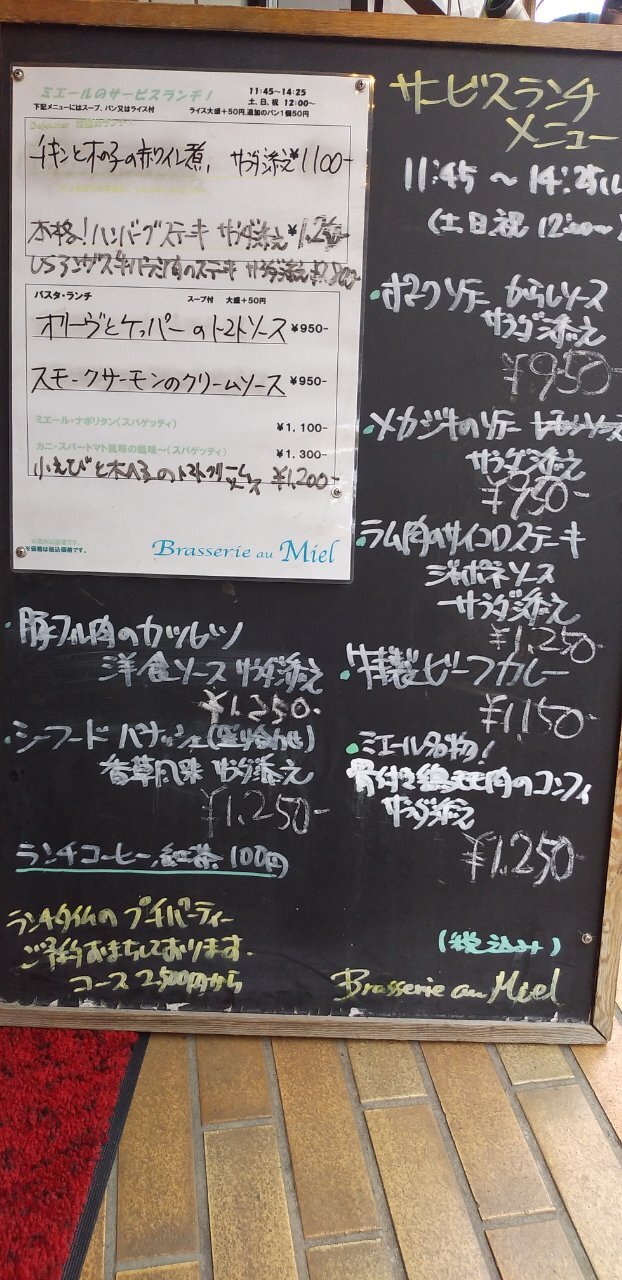 ミエールのサービスランチ！
11:45〜14:25
土、日、祝 12:00〜
下記メニューにはスープ、パン又はライス付
ライス大盛+50円,追加のパン1個50円
チキンと木の子の赤ワイン煮, サラダ添え ¥1100-
本格！ハンバーグステーキ サラダ添え ¥1,250-
USアンガスギバラシ肉のステーキ サラダ添え
パスタ・ランチ
スープ付 大盛+50円
オリーヴとケッパーのトマトソース ¥950-
スモークサーモンのクリームソース ¥950-
ミエール・ナポリタン(スパゲッティ) ¥1,100-
カニ・スパートマト風味の塩味〜(スパゲッティ) ¥1,300-
小えびと木の子のトマトクリームソース ¥1,200-
※価格は税込価格です。
Brasserie au Miel
サービスランチ
メニュー
11:45 〜 14:25
(土日祝 12:00〜)
・ポークソテー からしソース
サラダ添え
¥950-
・メカジキのソテー レモンソース
サラダ添え
¥950-
・ラム肉のサイコロステーキ
ジャポネソース
サラダ添え
¥1,250-
・特製ビーフカレー
¥1,150-
・ミエール名物！
骨付き鶏モモ肉のコンフィ
サラダ添え
¥1,250-
・豚フィレ肉のカツレツ
洋食ソース サラダ添え
¥1,250-
・シーフード パナッシェ(盛り合わせ)
香草風味 サラダ添え
¥1,250-
ランチコーヒー,紅茶 100円
ランチタイムの プチパーティー
ご予約おまちしております.
コース 2,500円から
(税込み)
Brasserie au Miel